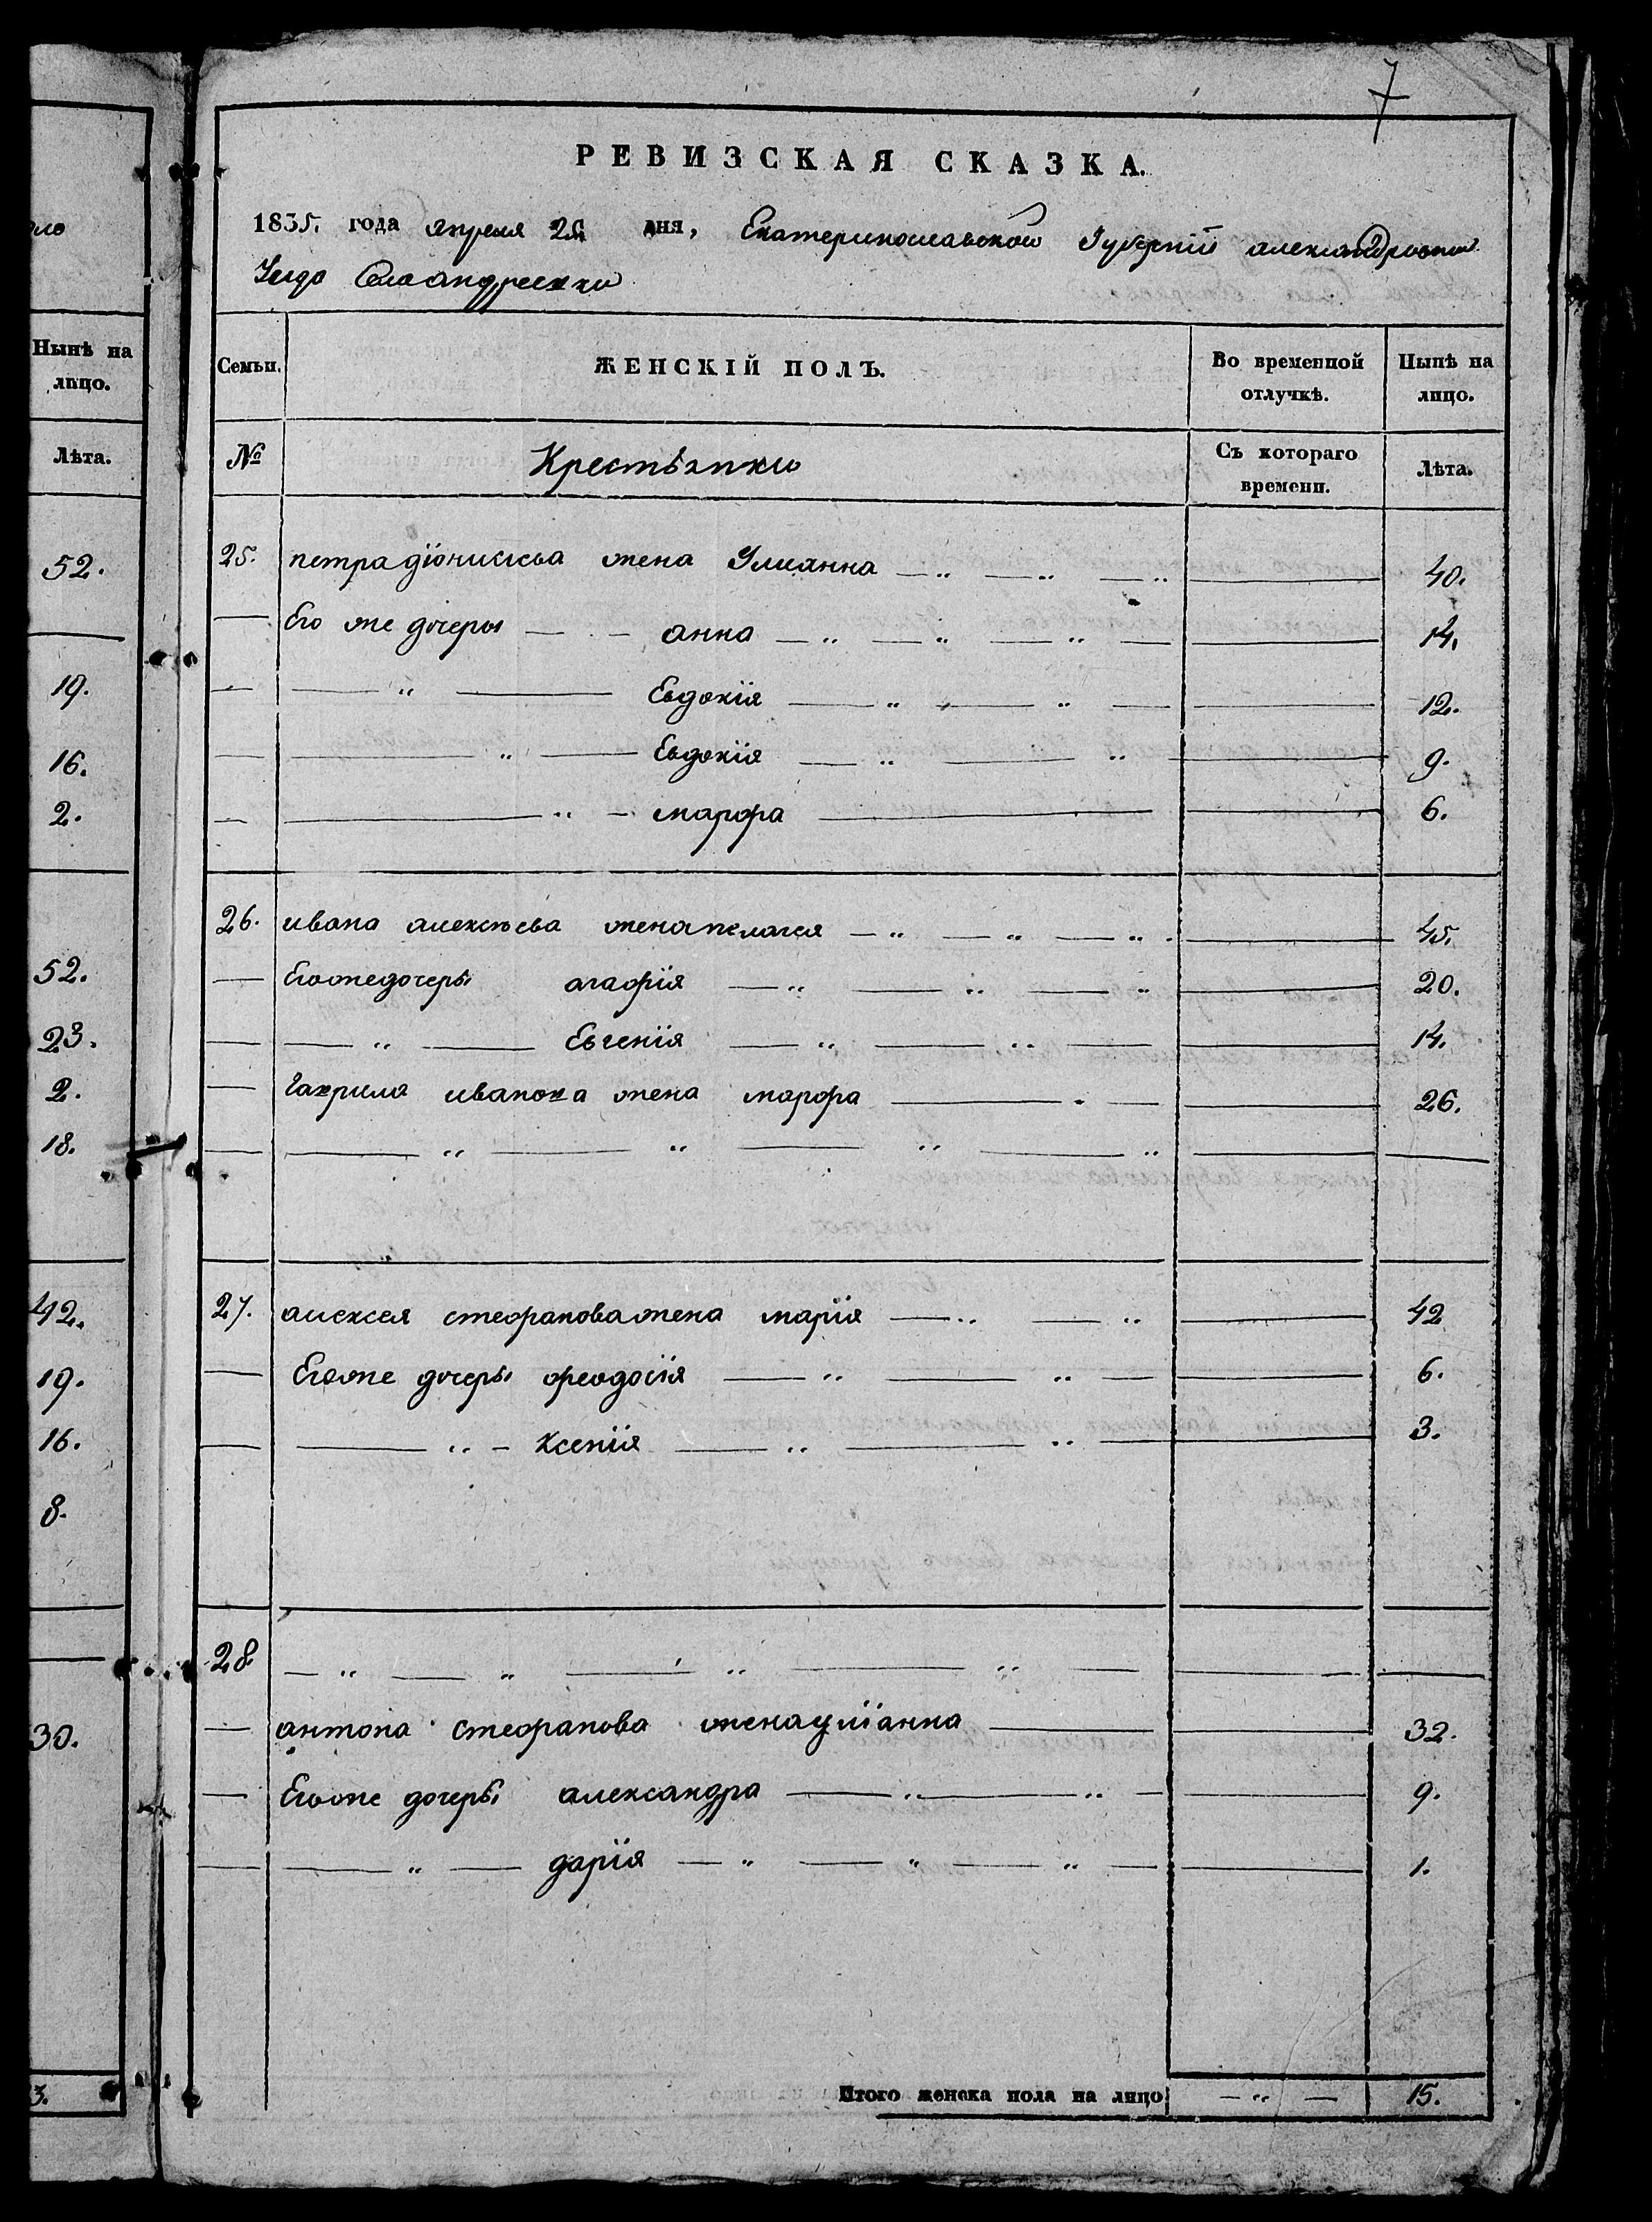 7
РЕВИЗСКАЯ СКАЗКА.
1835. года апреля 25 дня, Екатеринославской Губернїи александровскаго
Уезда Села андреевки
Семьи. ЖЕНСКІЙ ПОЛЪ. Во временной отлучкѣ. Нынѣ на лицо.
№ Крестьянки Съ котораго времени. Лѣта.
25. петра дїонисиева жена Улиянна 40.
Его же дочеры анна 14.
Евдокїя 12.
Евдокїя 9.
марфа 6.
26. ивана алексѣева жена пелагея 45.
Его же дочеры агафїя 20.
Евгенїя 14.
Гаврила иванова жена марфа 26.
27. алексея стефанова жена марїя 42
Его же дочеры феодосїя 6.
Ксенїя 3.
28.
антона стефанова жена улїанна 32.
Его же дочеры александра 9.
дарїя 1.
Итого женска пола на лицо 15.
Нынѣ на лицо.
Лѣта.
52.
19.
16.
2.
52.
23.
2.
18.
42.
19.
16.
8.
30.
3.